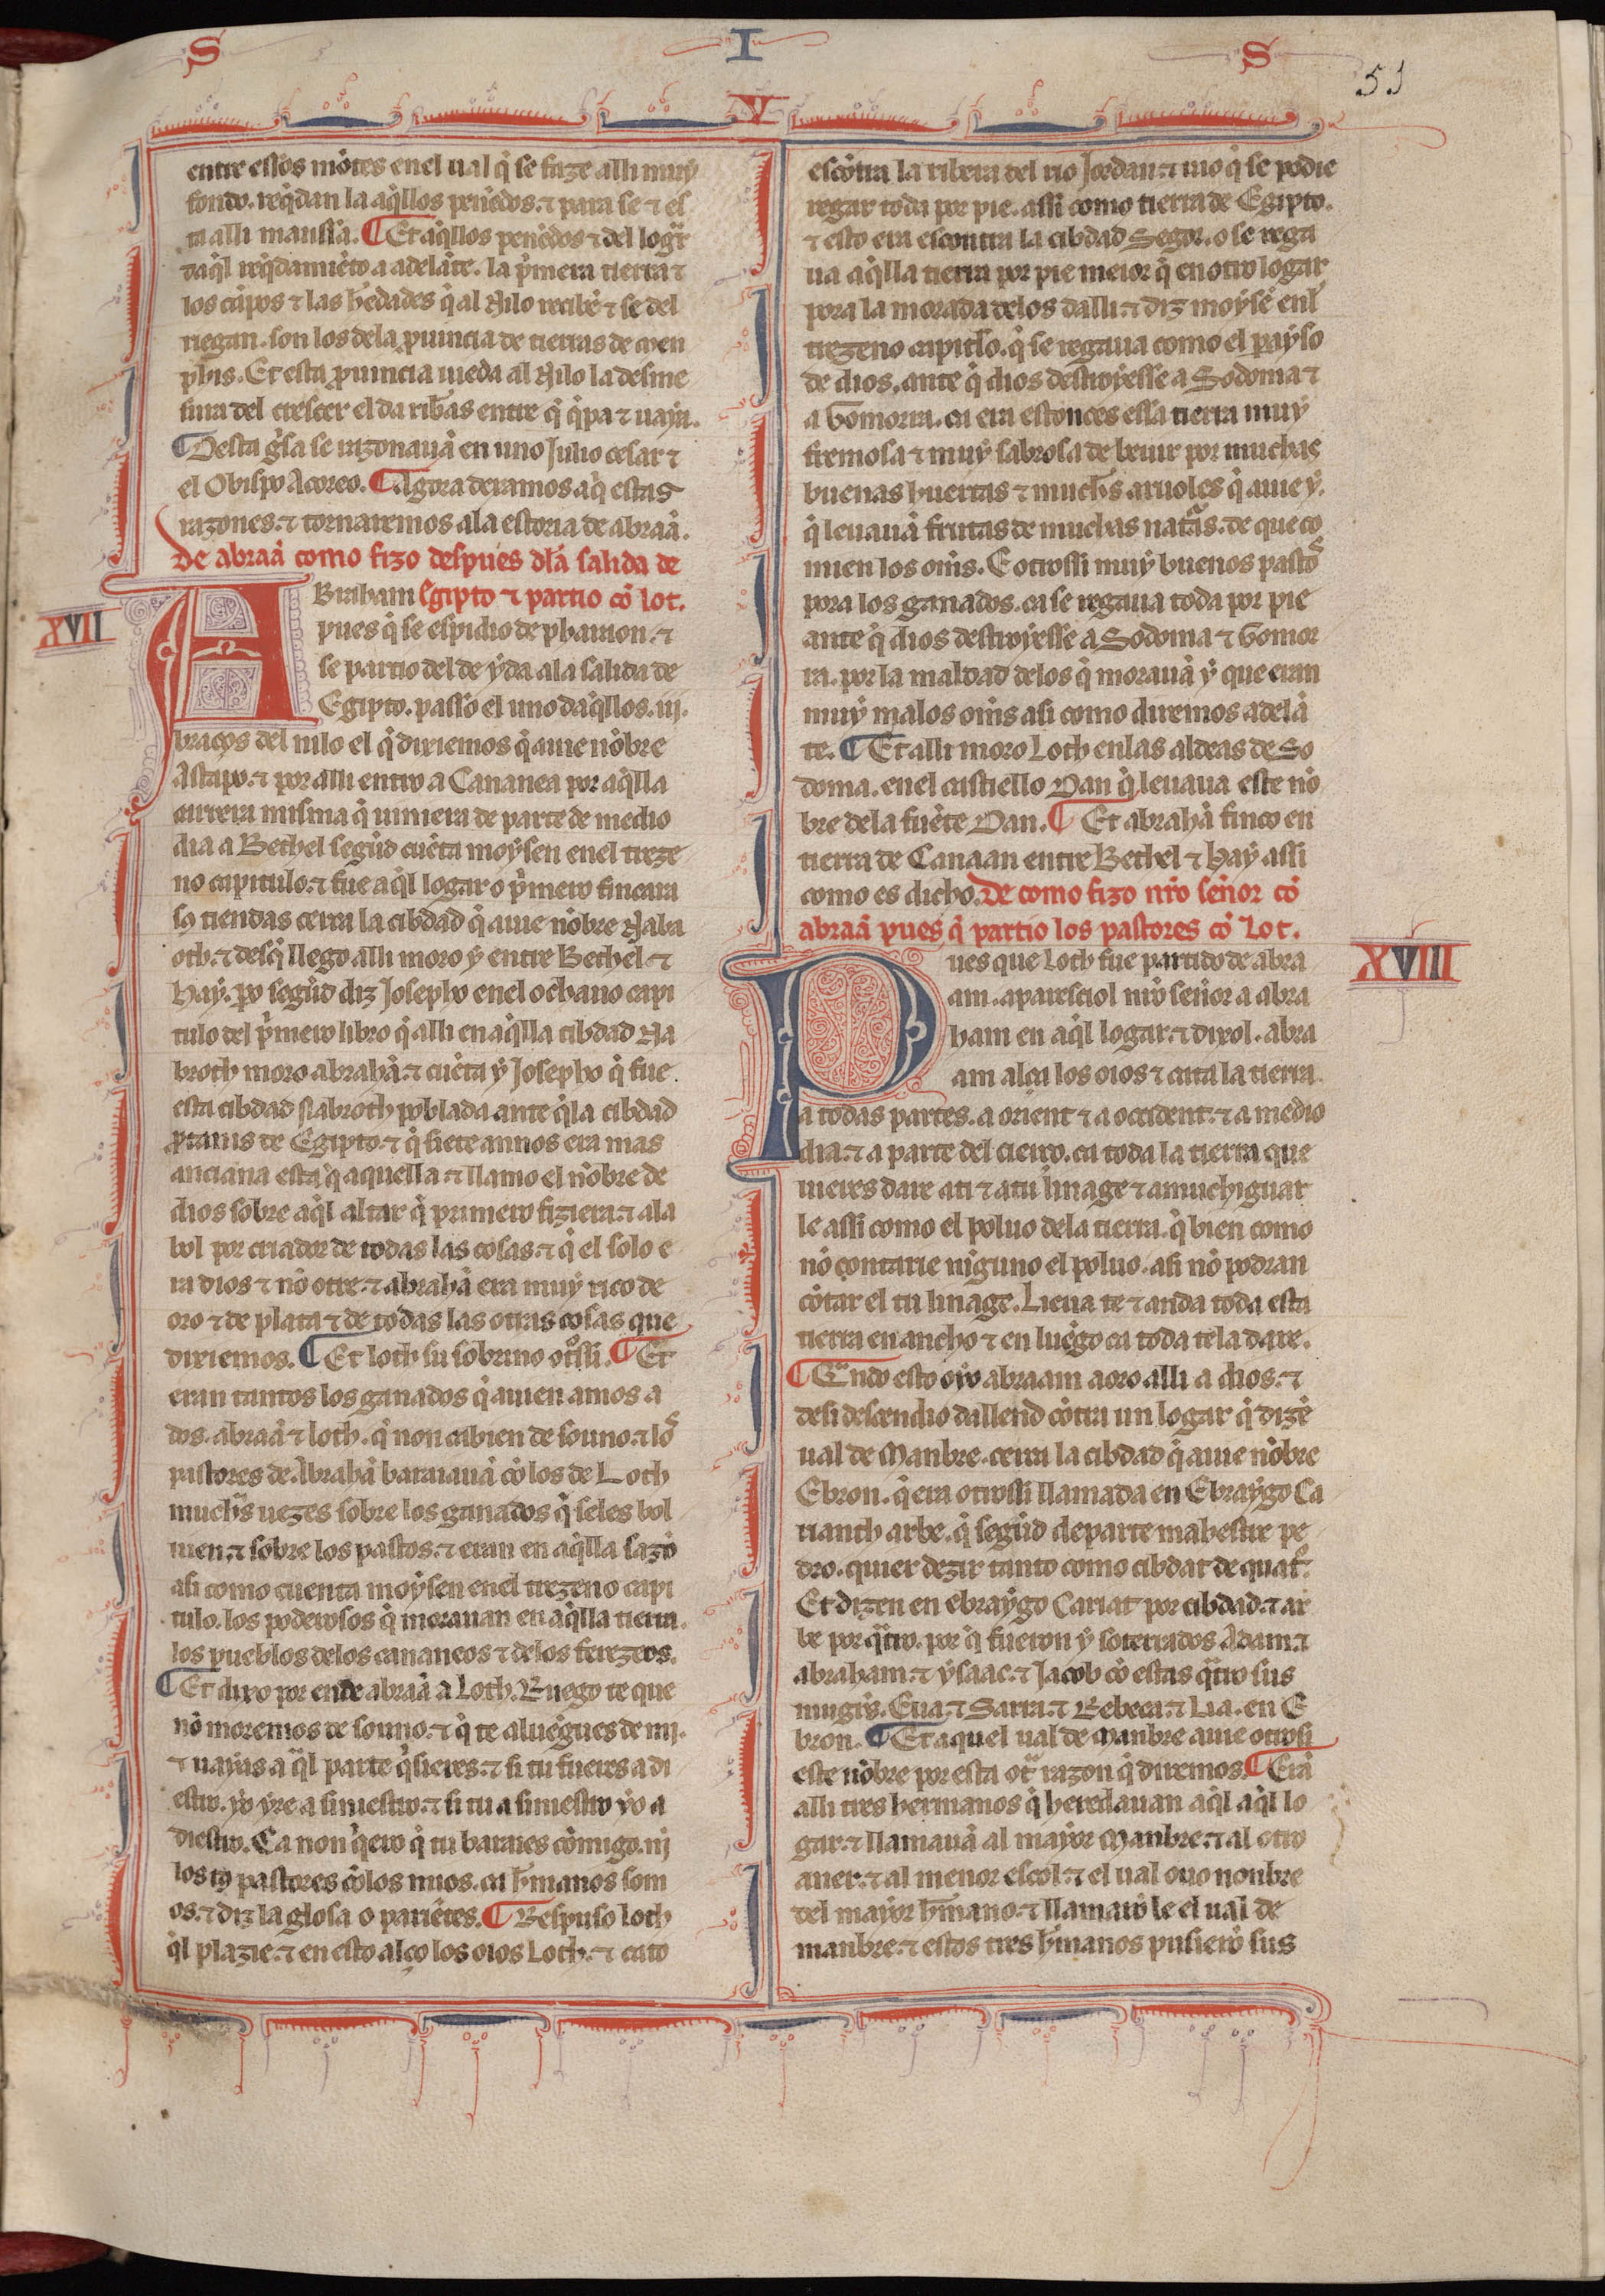 S I S
51
V
entre essos mõtes en el ual q̃ se faze alli muy
fondo. req̃dan la aq̃llos peñedos. ⁊ para se ⁊ es
ta alli manssa. ¶ Et aq̃llos peñedos ⁊ del logar
daq̃l req̃damiẽto a adelãte. la p̃mera tierra ⁊
los cãpos ⁊ las h̃edades q̃ al Nilo recibẽ ⁊ se del
riegan. son los dela prouincia de tierras de men
phis. Et esta prouincia uieda al Nilo la desme
sura del crescer el da ribas entre q̃ q̃pa ⁊ uaya.
¶ Desta g̃sa se razonauã en uno Julio cesar ⁊
el Obispo Acoreo. ¶ Agora dexamos aq̃ estas
razones. ⁊ tornaremos ala estoria de abraã.
De abraã como fizo despues dla salida de
XVII
ABraham Egipto ⁊ partio cõ lot.
pues q̃ se espidio de pharaon. ⁊
se partio del de yda ala salida de
Egipto. passo el uno daq̃llos. iij.
braços del nilo el q̃ dixiemos q̃ auie nõbre
Astapo. ⁊ por alli entro a Cananea por aq̃lla
carrera misma q̃ uiniera de parte de medio
dia a Bethel segũd cuẽta moysen en el treze
no capitulo. ⁊ fue aq̃l logar o p̃mero fincara
sꝰ tiendas cerca la cibdad q̃ auie nõbre Nabr
oth. ⁊ desq̃ llego alli moro y entre Bethel ⁊
Hay. po segũd diz Josepho en el ochauo capi
tulo del p̃mero libro q̃ alli en aq̃lla cibdad Na
broth moro abrahã. ⁊ cuẽta y Josepho q̃ fue
esta cibdad Nabroth poblada ante q̃ la cibdad
ptanis de Egipto. ⁊ q̃ siete annos era mas
anciana esta q̃ aquella. ⁊ llamo el nõbre de
dios sobre aq̃l altar q̃ primero fiziera. ⁊ ala
bol por criador de todas las cosas. ⁊ q̃ el solo e
ra dios ⁊ nõ otre. ⁊ abrahã era muy rico de
oro ⁊ de plata ⁊ de todas las otras cosas que
dixiemos. ¶ Et loth su sobrino otrossi. ¶ Et
eran tantos los ganados q̃ auien amos a
dos. abraã ⁊ loth. q̃ non cabien de souno. ⁊ los
pastores de Abrahã baraiauã cõ los de Loth
much̃s uezes sobre los ganados q̃ seles bol
uien. ⁊ sobre los pastos. ⁊ eran en aq̃lla sazõ
asi como cuenta moysen en el trezeno capi
tulo. los poderosos q̃ morauan en aq̃lla tierra.
los pueblos delos cananeos ⁊ delos ferezeos.
¶ Et dixo por ende abraã a Loth. Ruego te que
nõ moremos de souno. ⁊ q̃ te aluẽgues de mj.
⁊ uayas a q̃l parte q̃sieres. ⁊ si tu fueres a di
estro. yo yre a siniestro. ⁊ si tu a siniestro yo a
diestro. Ca non q̃ero q̃ tu baraies cõmigo. nj
los tꝰ pastores cõlos mios. ca h̃manos som
os. ⁊ diz la glosa o pariẽtes. ¶ Respuso loth
q̃l plazie. ⁊ en esto alço los oios Loth. ⁊ cato
escõtra la ribera del rio Jordan. ⁊ uio q̃ se podie
regar toda por pie. assi como tierra de Egipto.
⁊ esto era escontra la cibdad Segor. o se rega
ua aq̃lla tierra por pie meior q̃ en otro logar
pora la morada delos dalli. ⁊ diz moysẽ enl
trezeno capitlo. q̃ se regaua como el parayso
de dios. ante q̃ dios destroyesse a Sodoma ⁊
a Gomorra. ca era estonces essa tierra muy
fremosa ⁊ muy sabrosa de beuir por muchas
buenas huertas ⁊ much̃s aruoles q̃ auie y.
q̃ leuauã frutas de muchas nat̃as. de que co
mien los om̃s. E otrossi muy buenos pastos
pora los ganados. ca se regaua toda por pie
ante q̃ dios destroyesse a Sodoma ⁊ Gomor
ra. por la maldad delos q̃ morauã y que eran
muy malos om̃s asi como diremos adelã
te. ¶ Et alli moro Loth enlas aldeas de So
doma. en el castiello Dan q̃ leuaua este nõ
bre dela fuẽte Dan. ¶ Et abrahã finco en
tierra de Canaan entre Bethel ⁊ Hay. assi
como es dicho. De como fizo nr̃o señor cõ
abraã pues q̃ partio los pastores cõ Lot.
XVIII
Pues que Loth fue partido de abra
am. aparesciol nr̃o señor a abra
ham en aq̃l logar. ⁊ dixol. abra
am alça los oios ⁊ cata la tierra
a todas partes. a orient ⁊ a occident. ⁊ a medio
dia. ⁊ a parte del cierço. ca toda la tierra que
uieres dare ati ⁊ atu linage ⁊ amuchiguar
le assi como el poluo dela tierra. q̃ bien como
nõ contarie niguno el poluo. asi nõ podran
cõtar el tu linage. Lieua te ⁊ anda toda esta
tierra en ancho ⁊ en luẽgo ca toda tela dare.
¶ Quãdo esto oyo abraam aoro alli a dios. ⁊
desi descendio dallend cõtra un logar q̃ dizẽ
ual de Manbre. cerca la cibdad q̃ auie nõbre
Ebron. q̃ era otrossi llamada en Ebraygo Ca
riauth arbe. q̃ segũd departe mahestre pe
dro. quier dezir tanto como cibdat de quatro.
Et dizen en ebraygo Cariat por cibdad. ⁊ ar
be por q̃tro. por q̃ fueron y soterrados Adam. ⁊
abraham. ⁊ ysaac. ⁊ Jacob cõ estas q̃tro sus
mugi̇s. Eua. ⁊ Sarra. ⁊ Rebeca. ⁊ Lia. en E
bron. ¶ Et aquel ual de Manbre auie otrosi
este nõbre por esta ot̃ razon q̃ diremos. ¶ Erã
alli tres hermanos q̃ heredauan aq̃l aq̃l lo
gar. ⁊ llamauã al mayor Manbre. ⁊ al otro
aner. ⁊ al menor escol. ⁊ el ual ouo nonbre
del mayor h̃mano. ⁊ llamarõ le el ual de
manbre. ⁊ estos tres h̃manos pusierõ sus